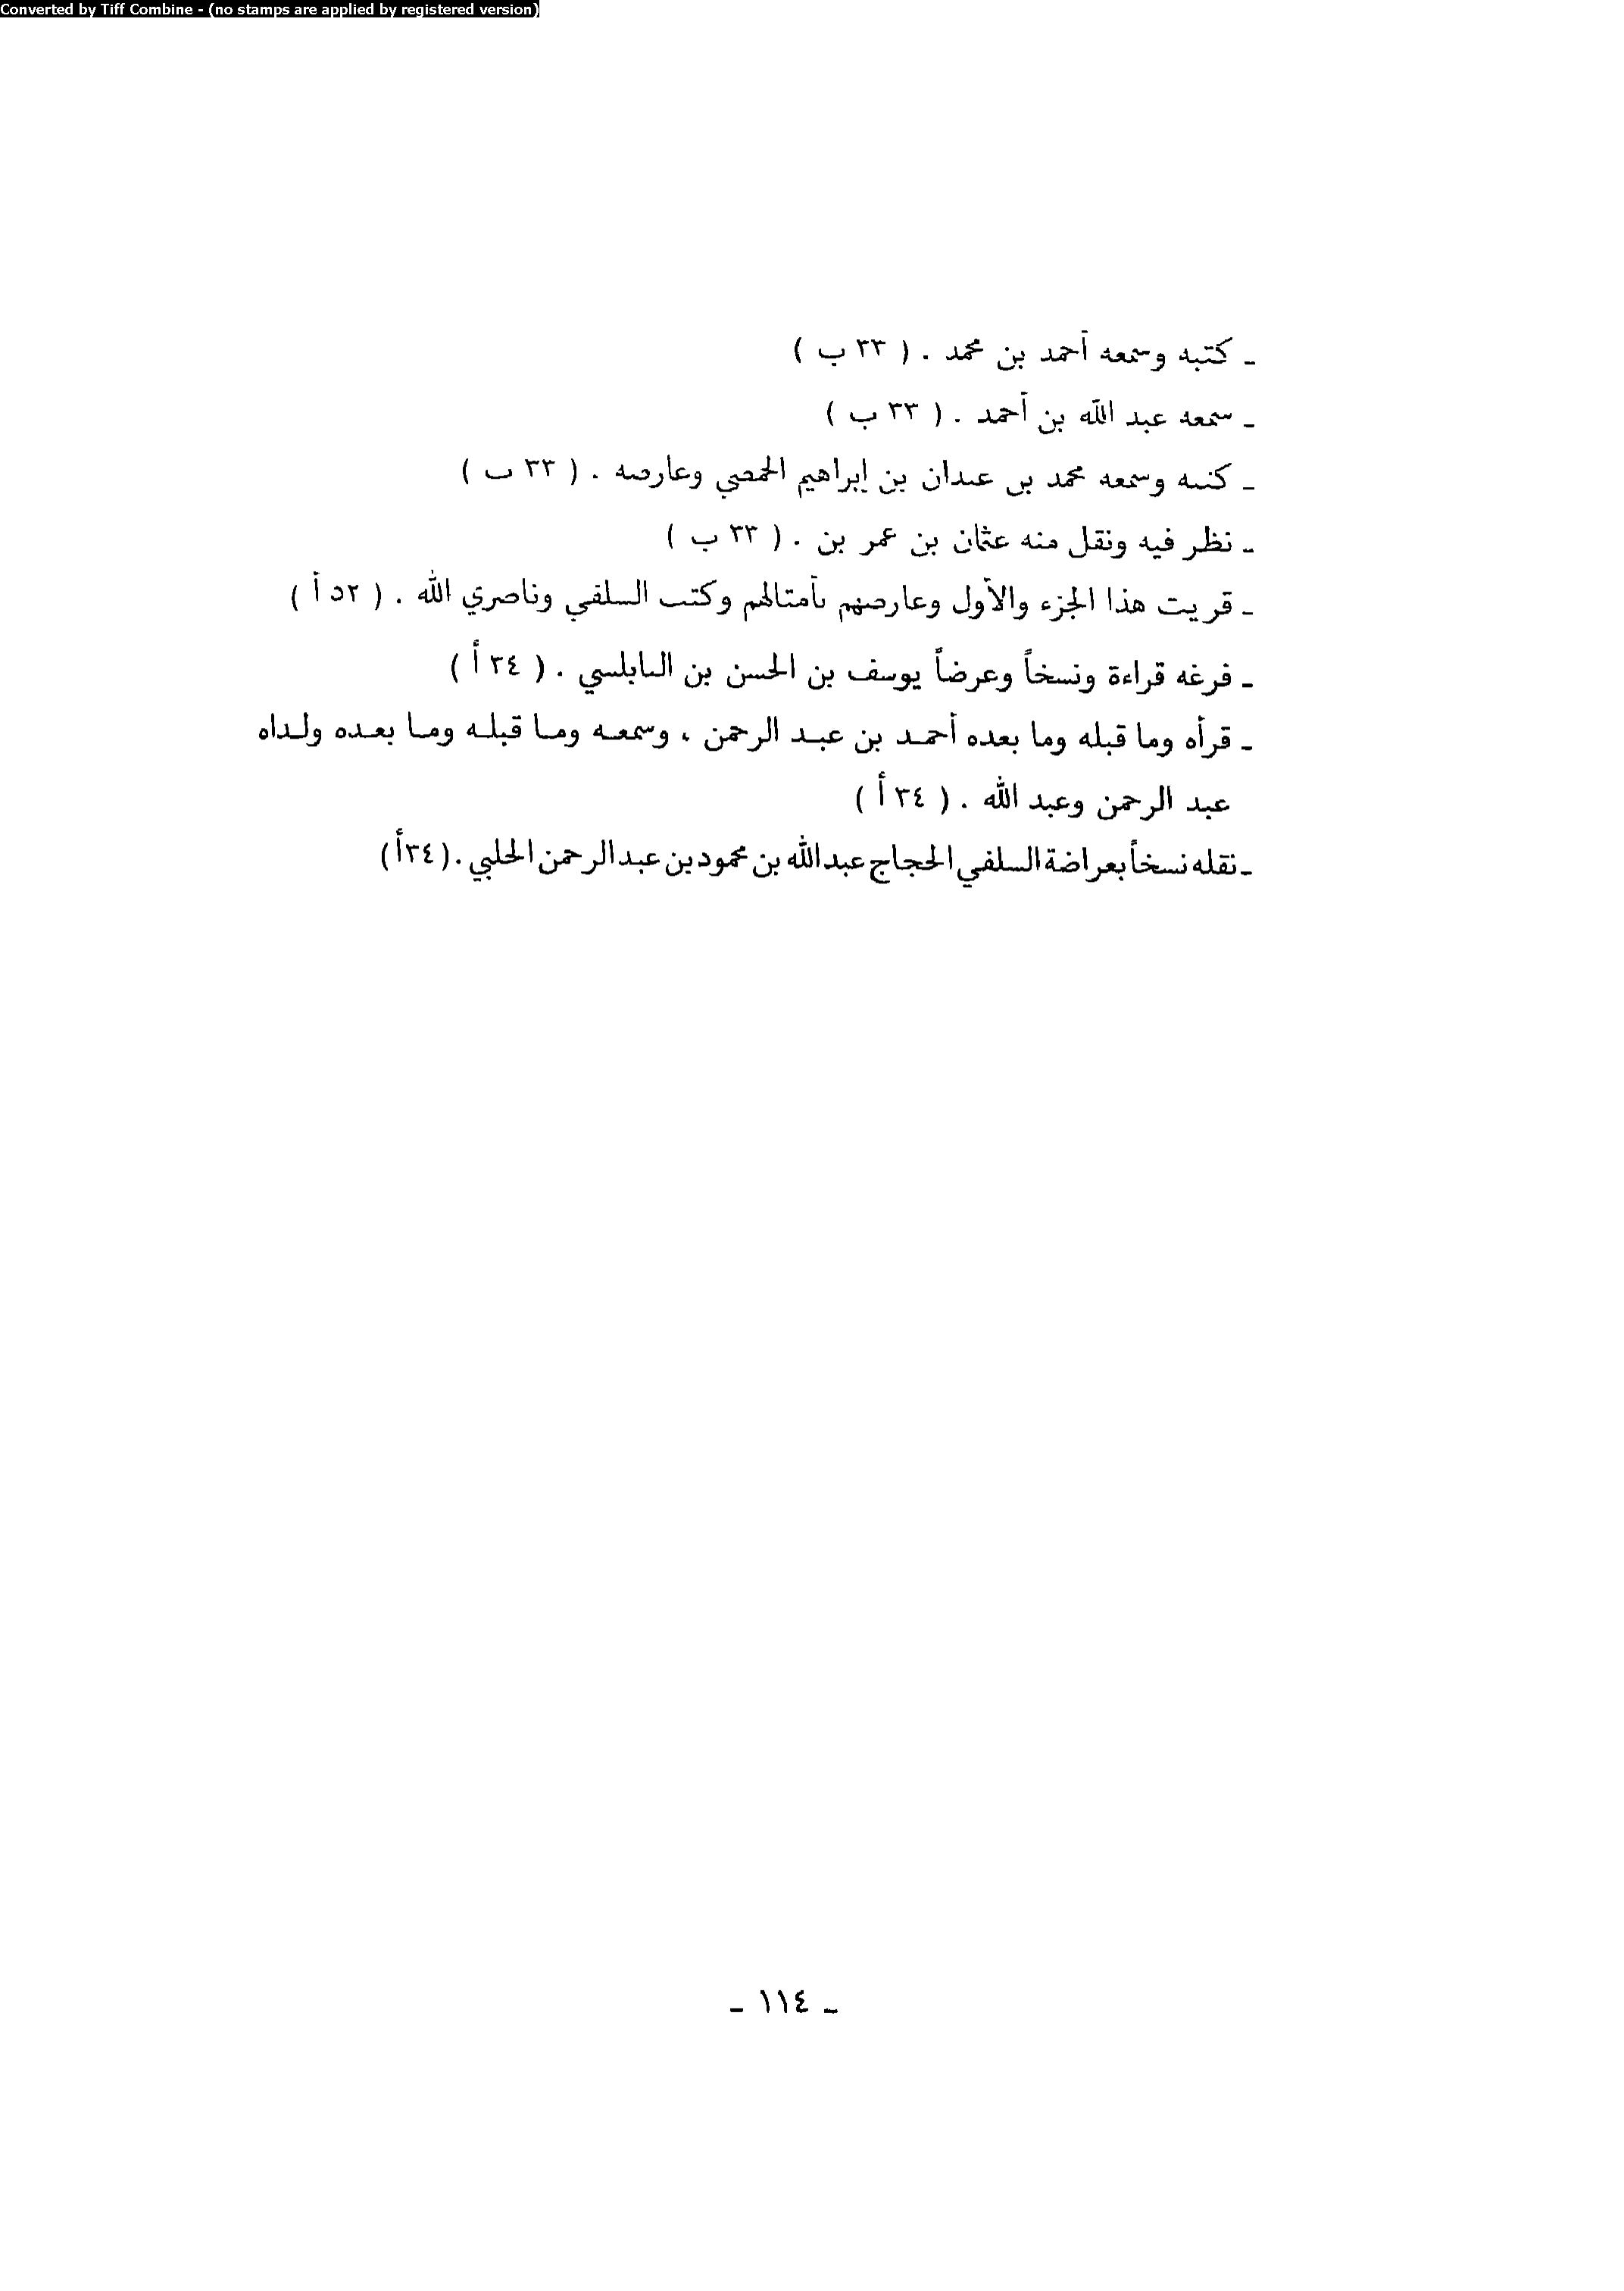 Converted by Tiff Combine - (no stamps are applied by registered version)
ـ كتبه وسمعه أحمد بن محمد . ( ٣٣ ب )
ـ سمعه عبد الله بن أحمد . ( ٣٣ ب )
ـ كتبه وسمعه محمد بن عبدان بن إبراهيم الحمصي وعارضه . ( ٣٣ ب )
ـ نظر فيه ونقل منه عثمان بن عمر بن . ( ٣٣ ب )
ـ قريت هذا الجزء والأول وعارضهم بأمثالهم وكتب السلفي وناصري الله . ( ٥٢ أ )
ـ فرغه قراءة ونسخاً وعرضاً يوسف بن الحسن بن النابلسي . ( ٣٤ أ )
ـ قرأه وما قبله وما بعده أحمد بن عبد الرحمن ، وسمعه وما قبله وما بعده ولداه
عبد الرحمن وعبد الله . ( ٣٤ أ )
ـ نقله نسخاً بعراضة السلفي الحجاج عبد الله بن محمود بن عبد الرحمن الحلبي . ( ٣٤ أ )
ـ ١١٤ ـ